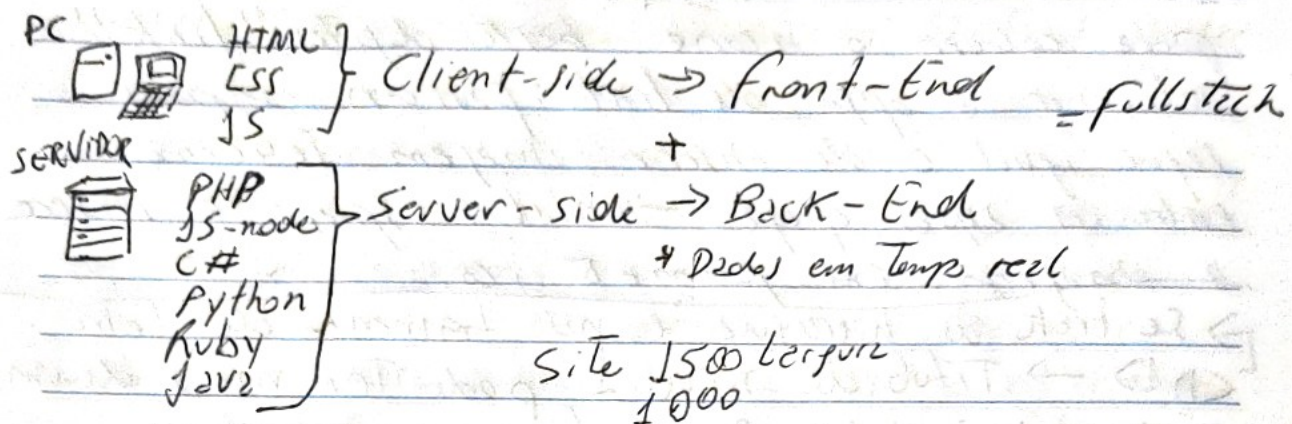 PC
HTML
CSS
JS
Client-side → Front-End = fullstack
+
SERVIDOR
PHP
JS-node
C#
Python
Ruby
Java
Server-side → Back-End
* Dados em Tempo real
Site 1500 largura
1000